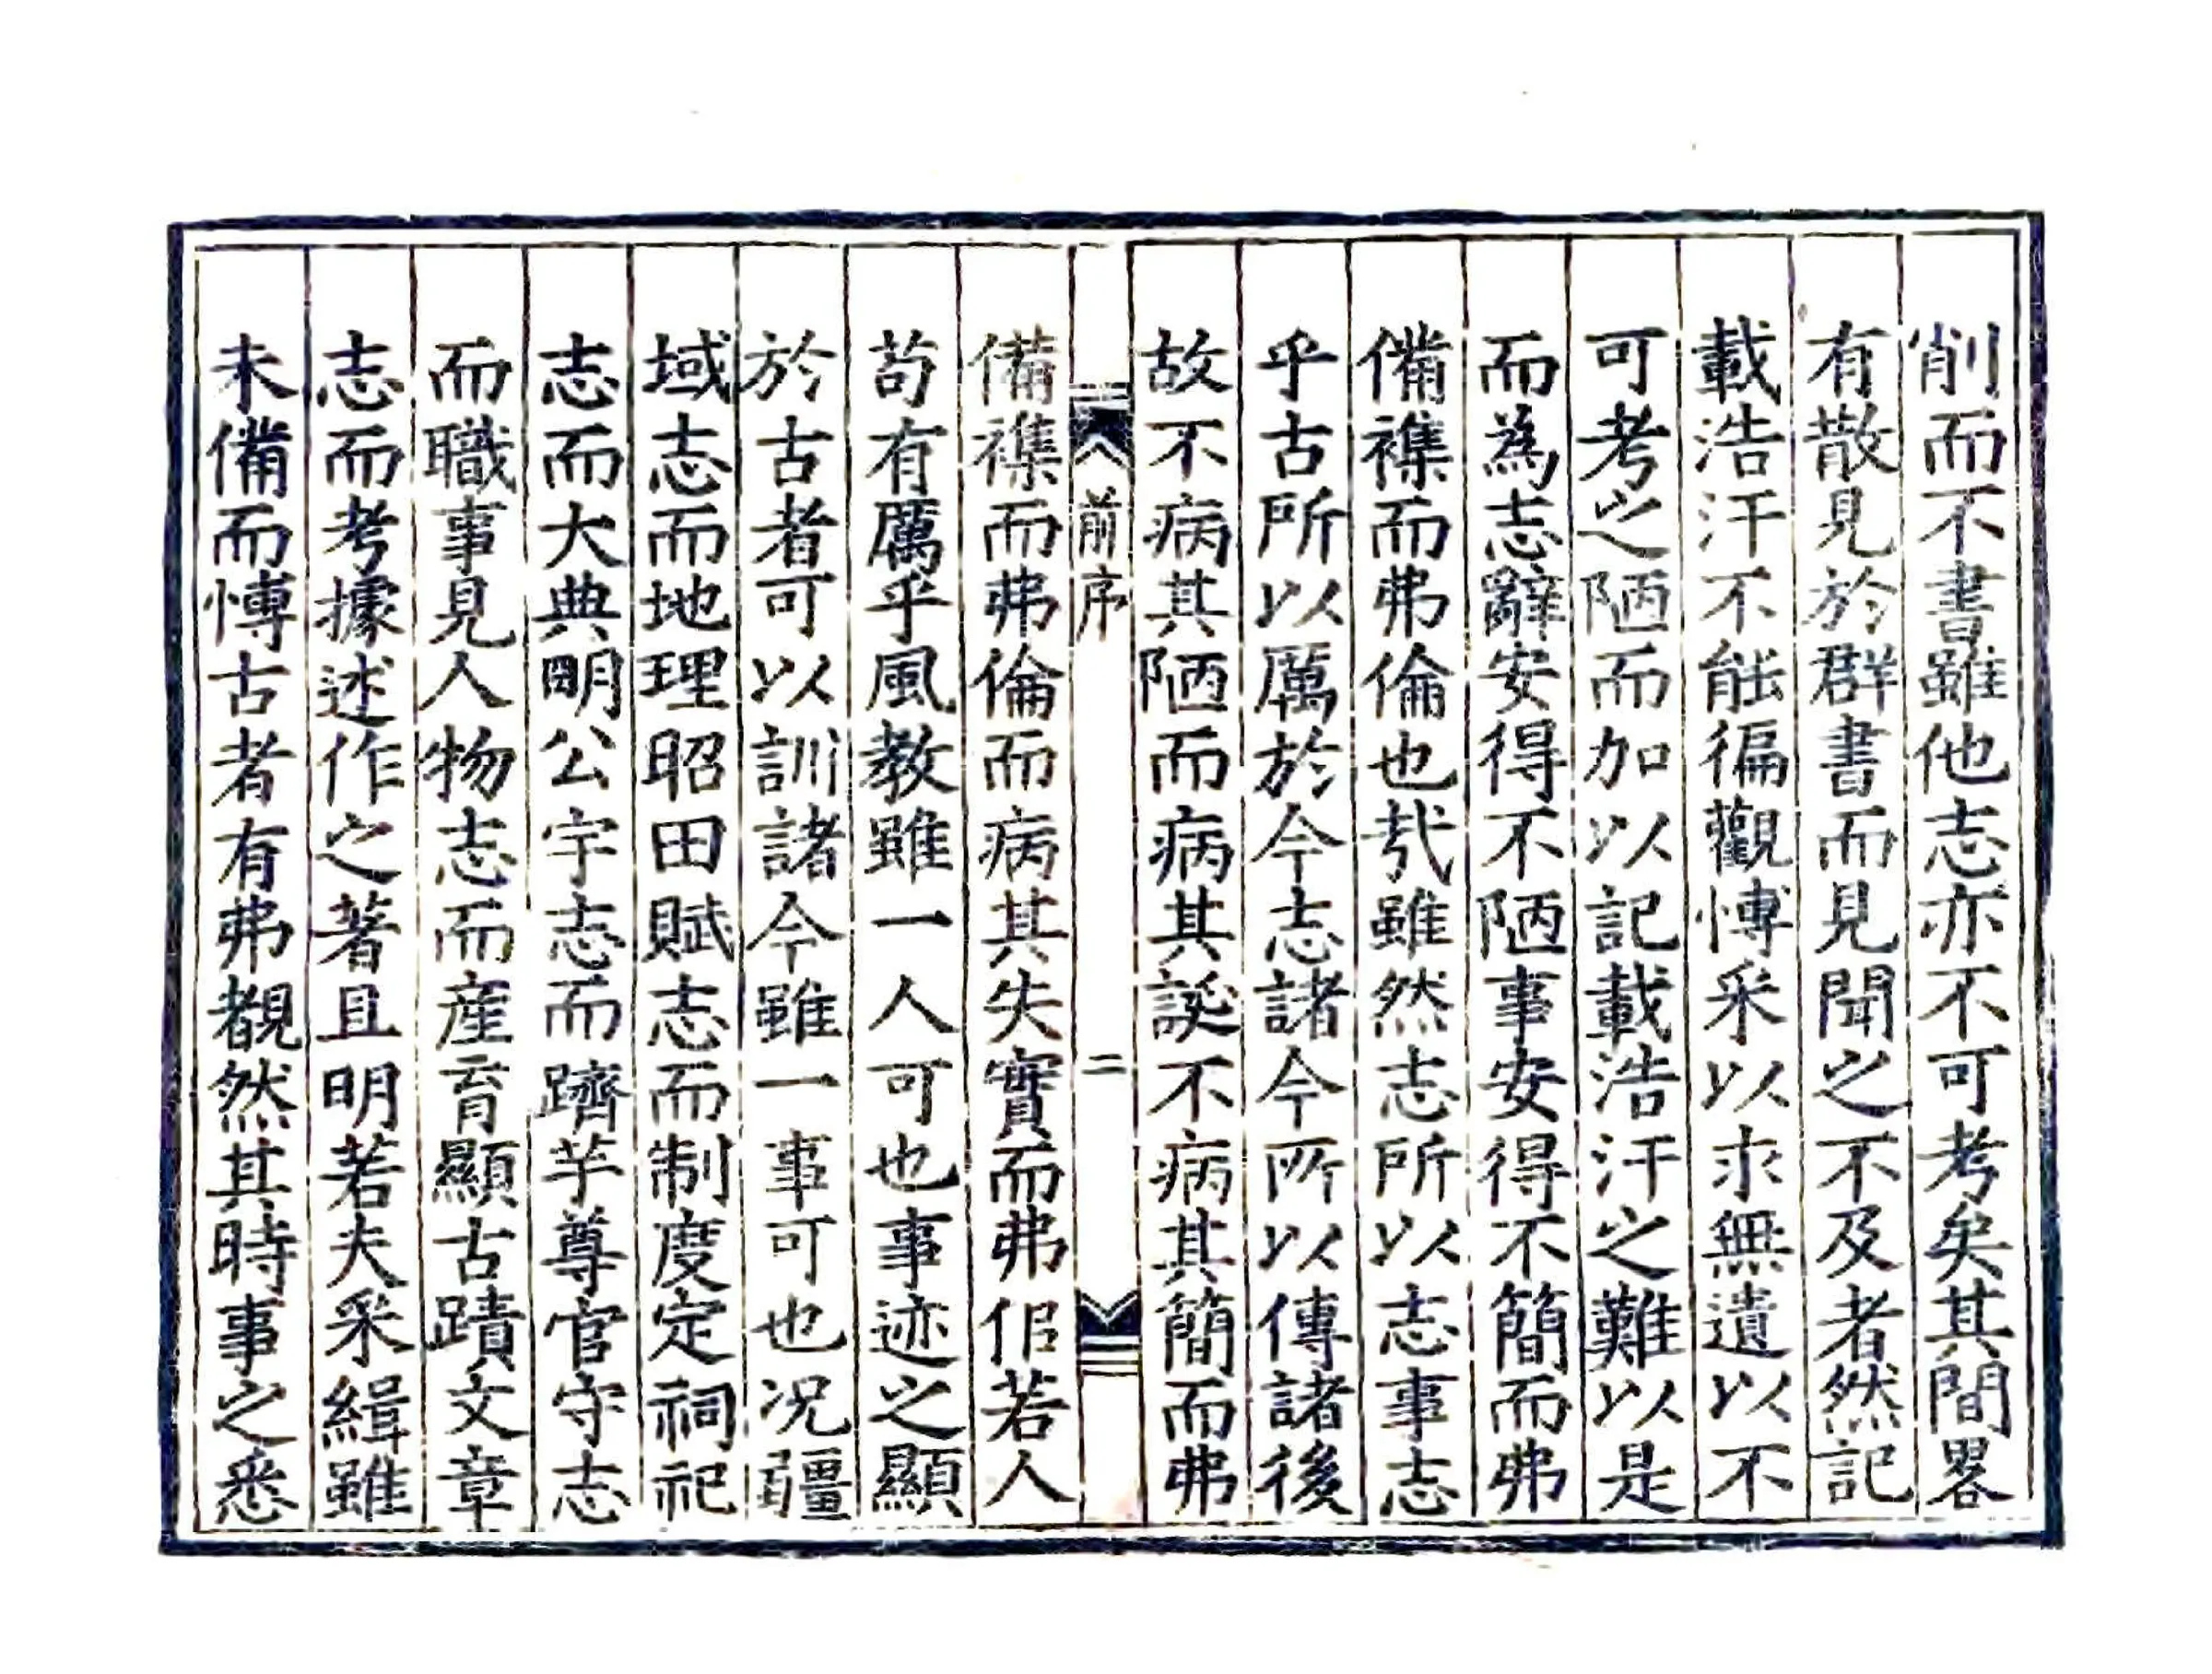 削而不書雖他志亦不可考矣其間畧
有散見於群書而見聞之不及者然記
載浩汗不能徧觀愽采以求無遺以不
可考之陋而加以記載浩汗之難以是
而為志辭安得不陋事安得不簡而弗
備襍而弗倫也㢤雖然志所以志事志
乎古所以厲於今志諸今所以傳諸後
故不病其陋而病其誕不病其簡而弗
前序
二
備襍而弗倫而病其失實而弗侣若人
茍有厲乎風教雖一人可也事迹之顯
於古者可以訓諸今雖一事可也况疆
域志而地理昭田賦志而制度定祠祀
志而大典明公宇志而躋芋尊官守志
而職事見人物志而產育顯古蹟文章
志而考據述作之著且明若夫采緝雖
未備而愽古者有弗覩然其時事之悉